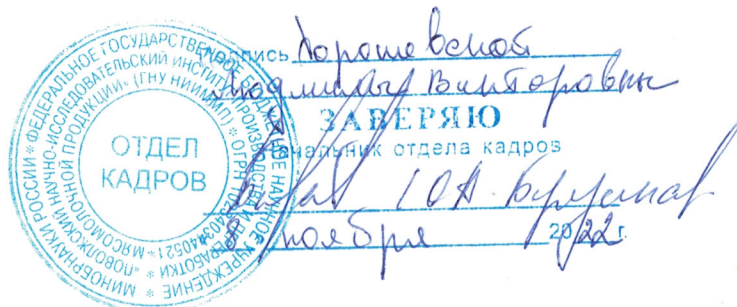 МИНОБРНАУКИ РОССИИ * ФЕДЕРАЛЬНОЕ ГОСУДАРСТВЕННОЕ БЮДЖЕТНОЕ НАУЧНОЕ УЧРЕЖДЕНИЕ *
"ПОВОЛЖСКИЙ НАУЧНО-ИССЛЕДОВАТЕЛЬСКИЙ ИНСТИТУТ ПРОИЗВОДСТВА И ПЕРЕРАБОТКИ МЯСОМОЛОЧНОЙ ПРОДУКЦИИ" (ГНУ НИИММП) * ОГРН
ОТДЕЛ
КАДРОВ
Подпись Хорошевской
Людмилы Викторовны
ЗАВЕРЯЮ
Начальник отдела кадров
Ю.А.
ноября 2022 г.